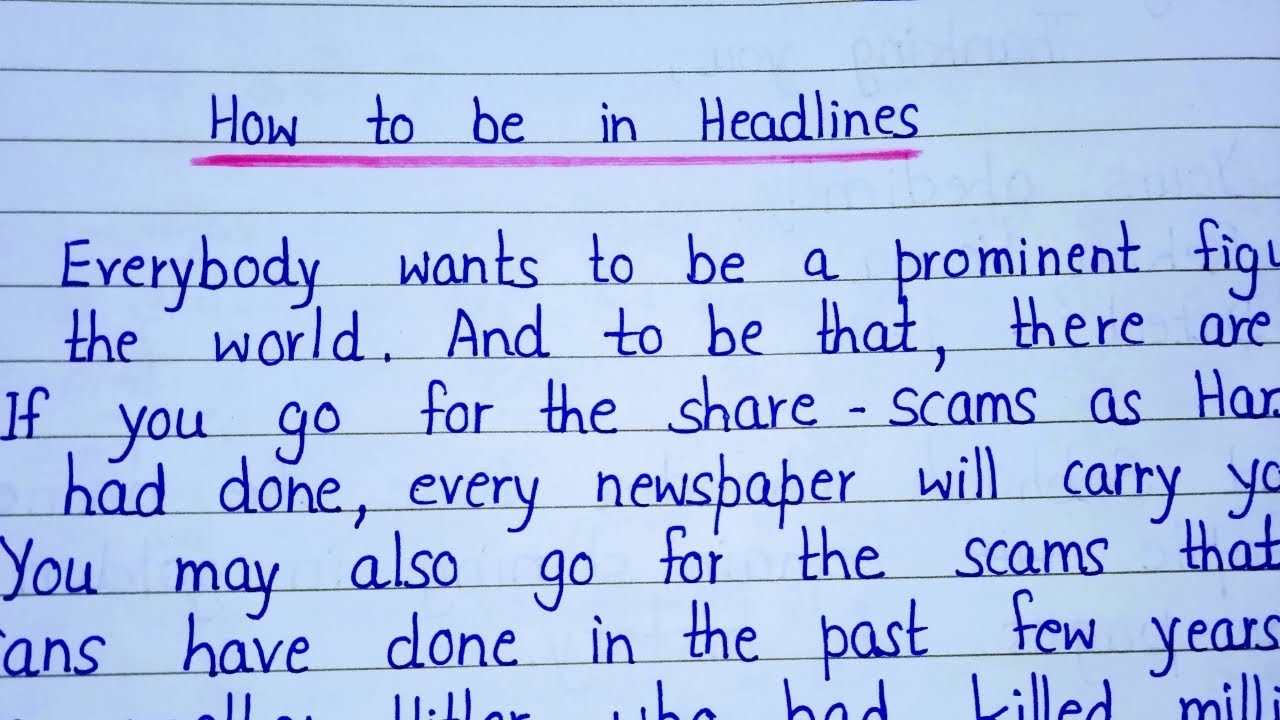 How to be in Headlines
Everybody wants to be a prominent
the world. And to be that, there are
If you go for the share - scams as
had done, every newspaper will carry
You may also go for the scams that
have done in the past few years
Hitler who had killed